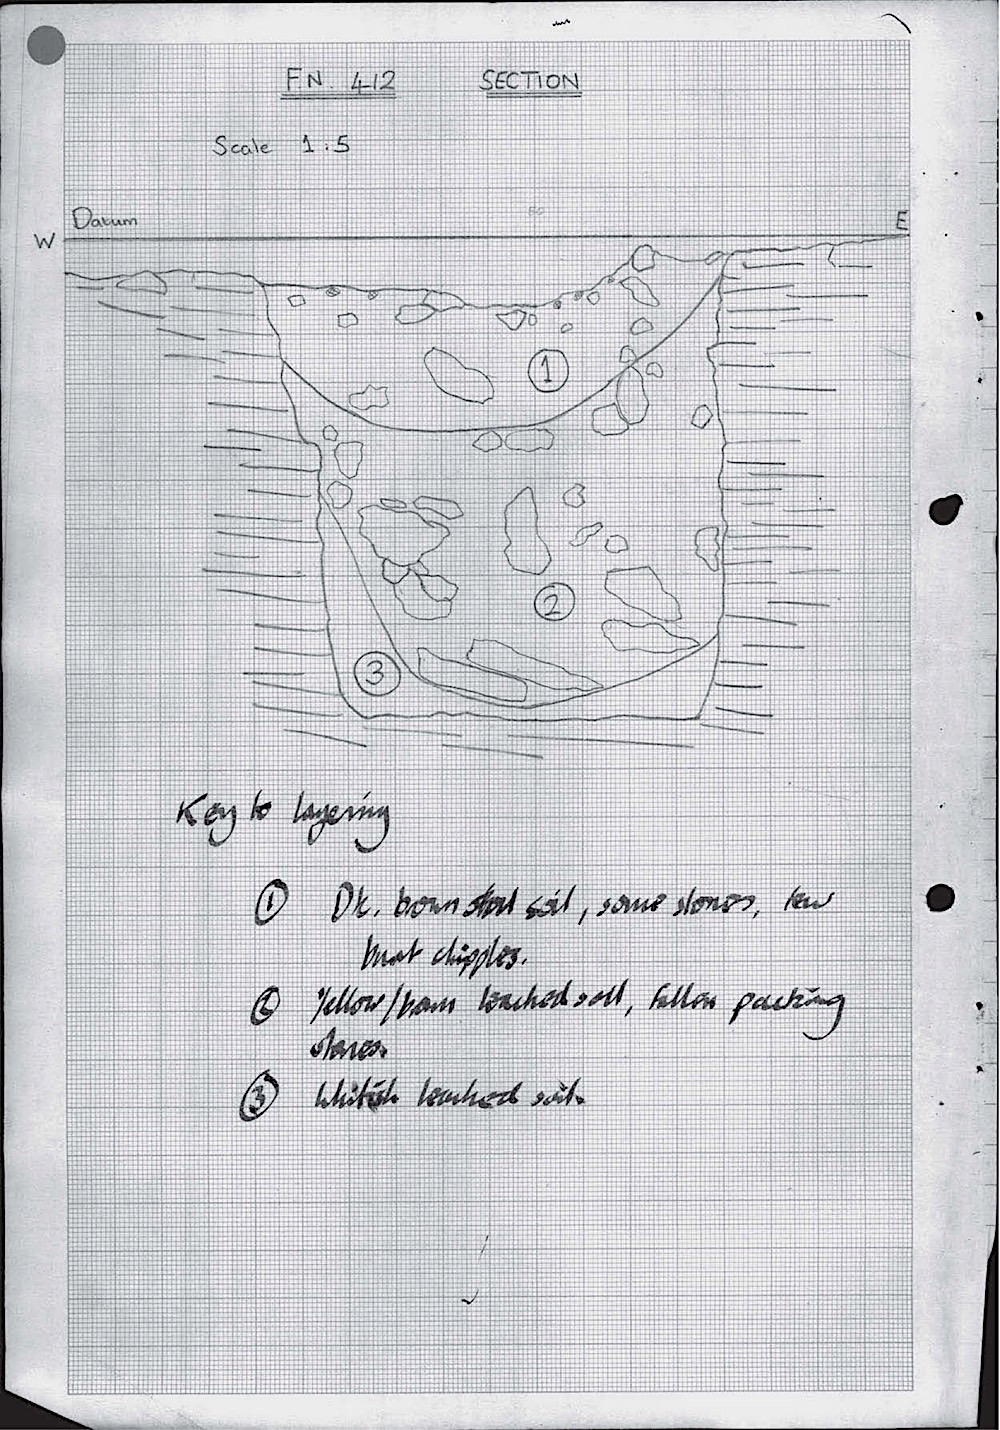 F.N. 412 SECTION
Scale 1:5
Datum
W E
1
2
3
Key to layering
1 Dk. brown soil, some stones, few
burnt chipples.
2 Yellow/brown leached soil, fallen packing
stones.
3 Whitish leached soil.